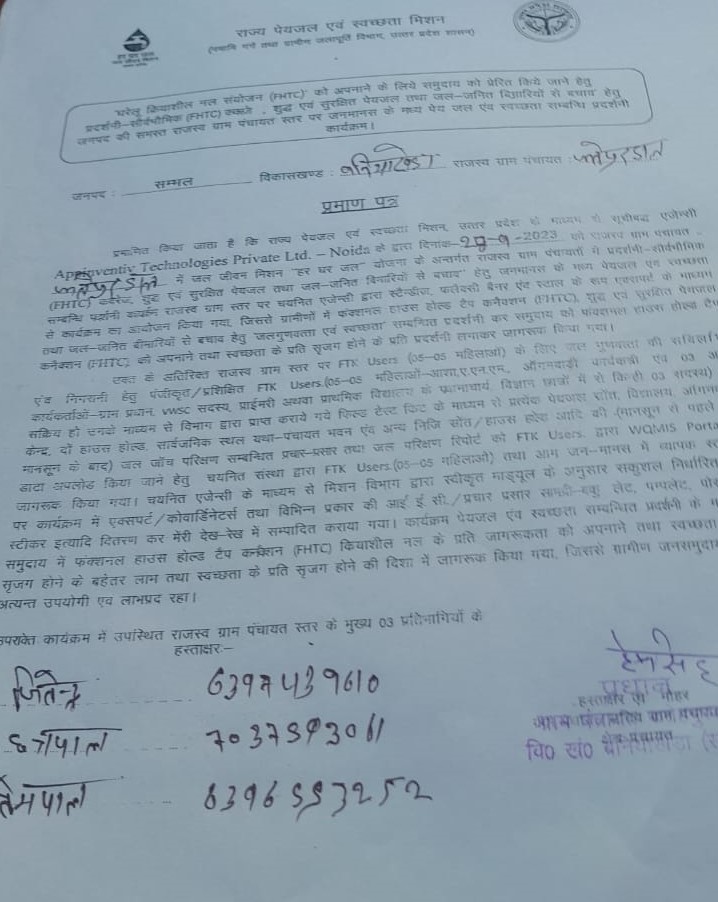 राज्य पेयजल एवं स्वच्छता मिशन
(नमामि गंगे तथा ग्रामीण जलापूर्ति विभाग, उत्तर प्रदेश शासन)
'घरेलू क्रियाशील नल संयोजन (FHTC)' को अपनाने के लिये समुदाय को प्रेरित किये जाने हेतु
प्रदर्शनी–सार्वभौमिक (FHTC) कवरेज, शुद्ध एवं सुरक्षित पेयजल तथा जल–जनित बिमारियों से बचाव' हेतु
जनपद की समस्त राजस्व ग्राम पंचायत स्तर पर जनमानस के मध्य पेय जल एंव स्वच्छता सम्बन्धि प्रदर्शनी
कार्यक्रम।
जनपद : सम्भल विकासखण्ड : बनियाखेडा राजस्व ग्राम पंचायत :
प्रमाण पत्र
प्रमाणित किया जाता है कि राज्य पेयजल एवं स्वच्छता मिशन, उत्तर प्रदेश के माध्यम से सूचीबद्ध एजेन्सी
Appinventiv Technologies Private Ltd. – Noida के द्वारा दिनांक -9-2023 को राजस्व ग्राम पंचायत -
में जल जीवन मिशन "हर घर जल" योजना के अन्तर्गत राजस्व ग्राम पंचायतों में प्रदर्शनी–सार्वभौमिक
(FHTC) कवरेज, शुद्ध एवं सुरक्षित पेयजल तथा जल–जनित बिमारियों से बचाव" हेतु जनमानस के मध्य पेयजल एंव स्वच्छता
सम्बन्धि प्रदर्शनी कार्यक्रम राजस्व ग्राम स्तर पर चयनित एजेन्सी द्वारा स्टैन्डीज, फ्लैक्सी बैनर एंव स्टाल के रूप एक्सपर्ट के माध्यम
से कार्यक्रम का आयोजन किया गया, जिससे ग्रामीणों में फंक्शनल हाउस होल्ड टैप कनैक्शन (FHTC), शुद्ध एंव सुरक्षित पेयजल
तथा जल–जनित बीमारियों से बचाव हेतु जलगुणवत्ता एवं स्वच्छता सम्बन्धित प्रदर्शनी कर समुदाय को फंक्शनल हाउस होल्ड टैप
कनैक्शन (FHTC) को अपनाने तथा स्वच्छता के प्रति सृजग होने के प्रति प्रदर्शनी लगाकर जागरूक किया गया।
उक्त के अतिरिक्त राजस्व ग्राम स्तर पर FTK Users (05–05 महिलाओं) के लिए जल गुणवत्ता की
एंव निगरानी हेतु पंजीकृत/प्रशिक्षित FTK Users.(05–05 महिलाओं–आशा,ए.एन.एम., आँगनवाड़ी कार्यकत्री एंव 03
कार्यकर्ताओं–ग्राम प्रधान, vwsc सदस्य, प्राईमरी अथवा प्राथमिक विद्यालय के प्रधानाचार्य, विज्ञान छात्रों में से किन्ही 03 सदस्य)
सक्रिय हो उनके माध्यम से विभाग द्वारा प्राप्त कराये गये फिल्ड टेस्ट किट के माध्यम से प्रत्येक पेयजल स्रोत, विद्यालय,
केन्द्र, दों हाउस होल्ड, सार्वजनिक स्थल यथा–पंचायत भवन एंव अन्य निजि स्रोत/हाउस होल्ड आदि की (मानसून से पहले
मानसून के बाद) जल जाँच परिक्षण सम्बन्धित प्रचार–प्रसार तथा जल परिक्षण रिपोर्ट को FTK Users. द्वारा WQMIS
डाटा अपलोड किया जाने हेतु चयनित संस्था द्वारा FTK Users.(05–05 महिलाओं) तथा आम जन–मानस में व्यापक
जागरूक किया गया। चयनित एजेन्सी के माध्यम से मिशन विभाग द्वारा स्वीकृत माड्यूल के अनुसार सकुशल निर्धारित
पर कार्यक्रम में एक्सपर्ट/कोवार्डिनेटर्स तथा विभिन्न प्रकार की आई ई सी./प्रचार प्रसार सामग्री–बुक लेट, पम्पलेट,
स्टीकर इत्यादि वितरण कर मेरी देख–रेख में सम्पादित कराया गया। कार्यक्रम पेयजल एंव स्वच्छता सम्बन्धित प्रदर्शनी के
समुदाय में फंक्शनल हाउस होल्ड टैप कनैक्शन (FHTC) क्रियाशील नल के प्रति जागरूकता को अपनाने तथा स्वच्छता
सृजग होने के बहेतर लाभ तथा स्वच्छता के प्रति सृजग होने की दिशा में जागरूक किया गया, जिससे ग्रामीण जनसमुदाय
अत्यन्त उपयोगी एव लाभप्रद रहा।
उपरोक्त कार्यक्रम में उपस्थित राजस्व ग्राम पंचायत स्तर के मुख्य 03 प्रतिभागियों के
हस्ताक्षर:–
जितेन्द्र
छत्रपाल
हेमसिंह
प्रधान
हस्ताक्षर एंव मोहर
ग्राम पंचायत
वि० खं०